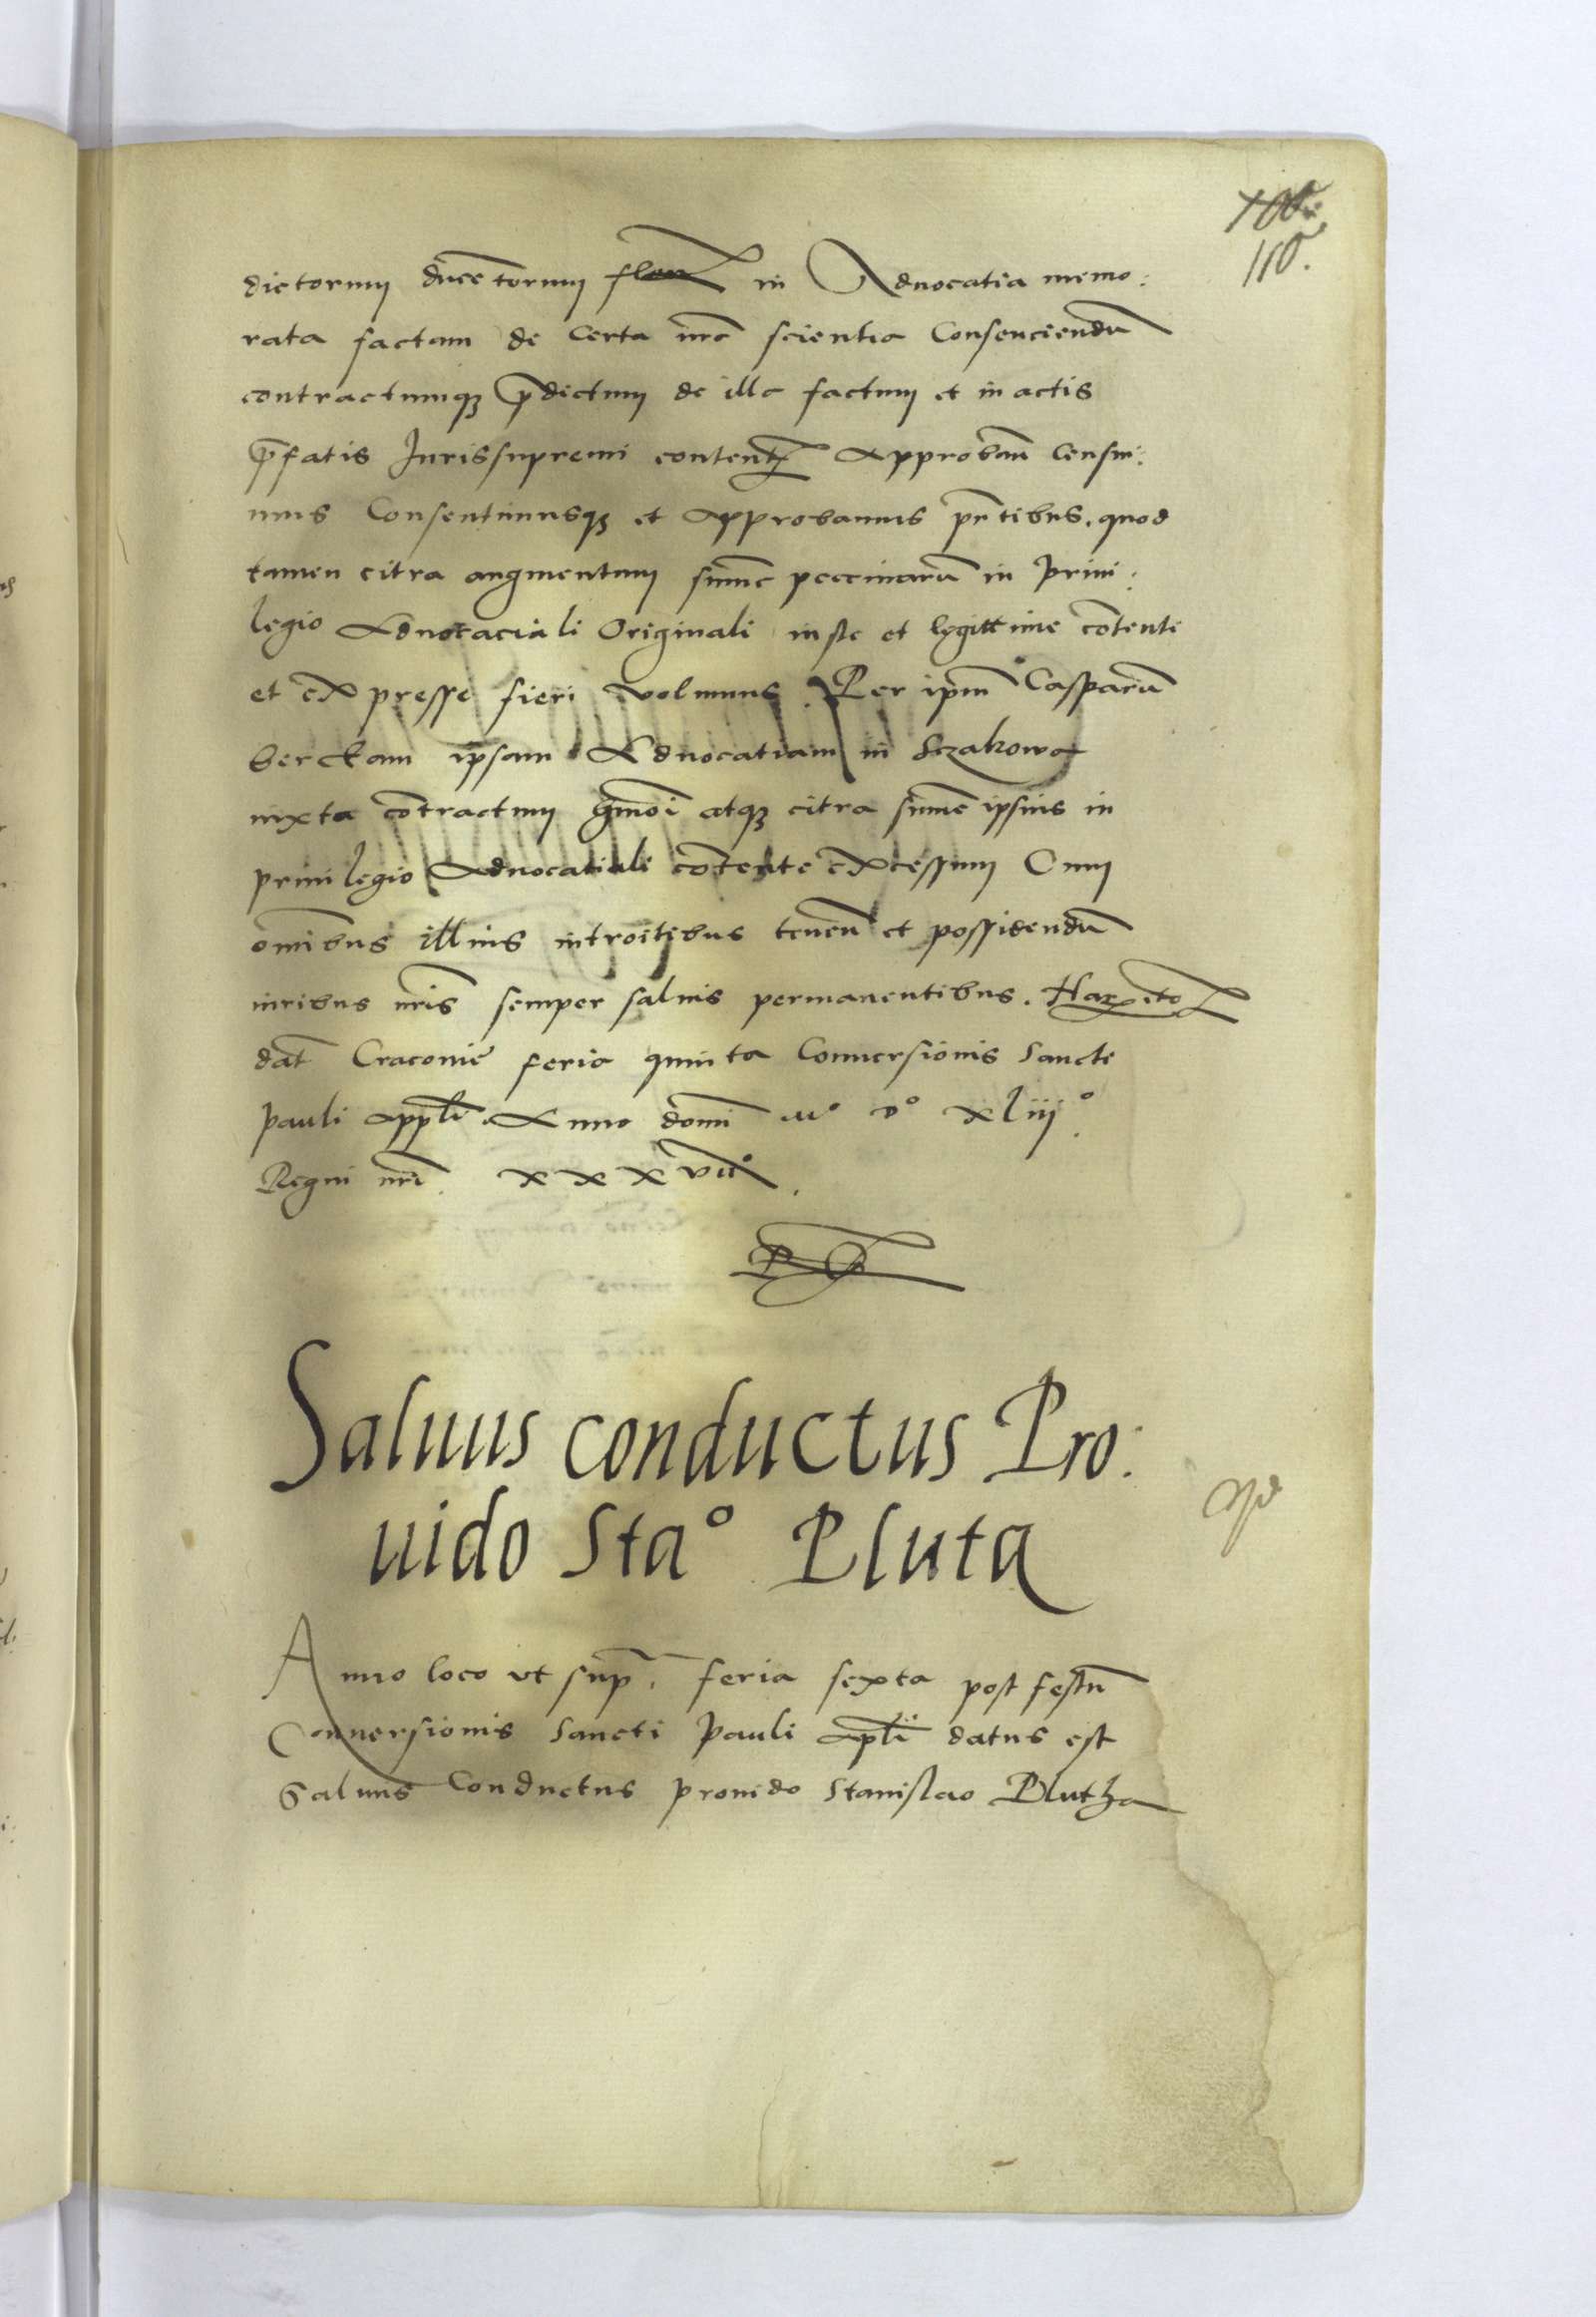 110.
dictorum ducētorum floꝝ in Aduocatia memo:
rata factam de certa nrāc scientia Consenciendū
contractumqꝫ p̄dictum de illa factum et in actis
p̄fatis Iurissupremi content̄ approbān censui:
mus Consentimusqꝫ et approbamus pn̄tibus. quod
tamen citra augmentum sum̄e peccuniarū in priui:
legio Aduocaciali Originali iuste et legittime cōtente
et expresse fieri volumus. Per ipm̄ Casparū
berckam ipsam Aduocatiam in Sczakowa
iuxta cōtractum hm̄oi atqꝫ citra sum̄e ipsius in
priuilegio Aduocatiali cōtente excessum Cum
om̄ibus illius introitibus teneñ et possidendū
iuribus nr̄is semper saluis permanentibus. Harꝫ
dat̄ Cracouie feria quinta Conuersionis Sancti
Pauli appli̅ Anno domi̅ M° v° xliij°.
Regni nr̄i xxxvii°.
Saluus conductus Pro:
uido Sta° Pluta
Anno loco vt sup̄. feria sexta post festū
Conuersionis Sancti Pauli apli̅ datus est
Saluus Conductus prouido Stanislao Plutha